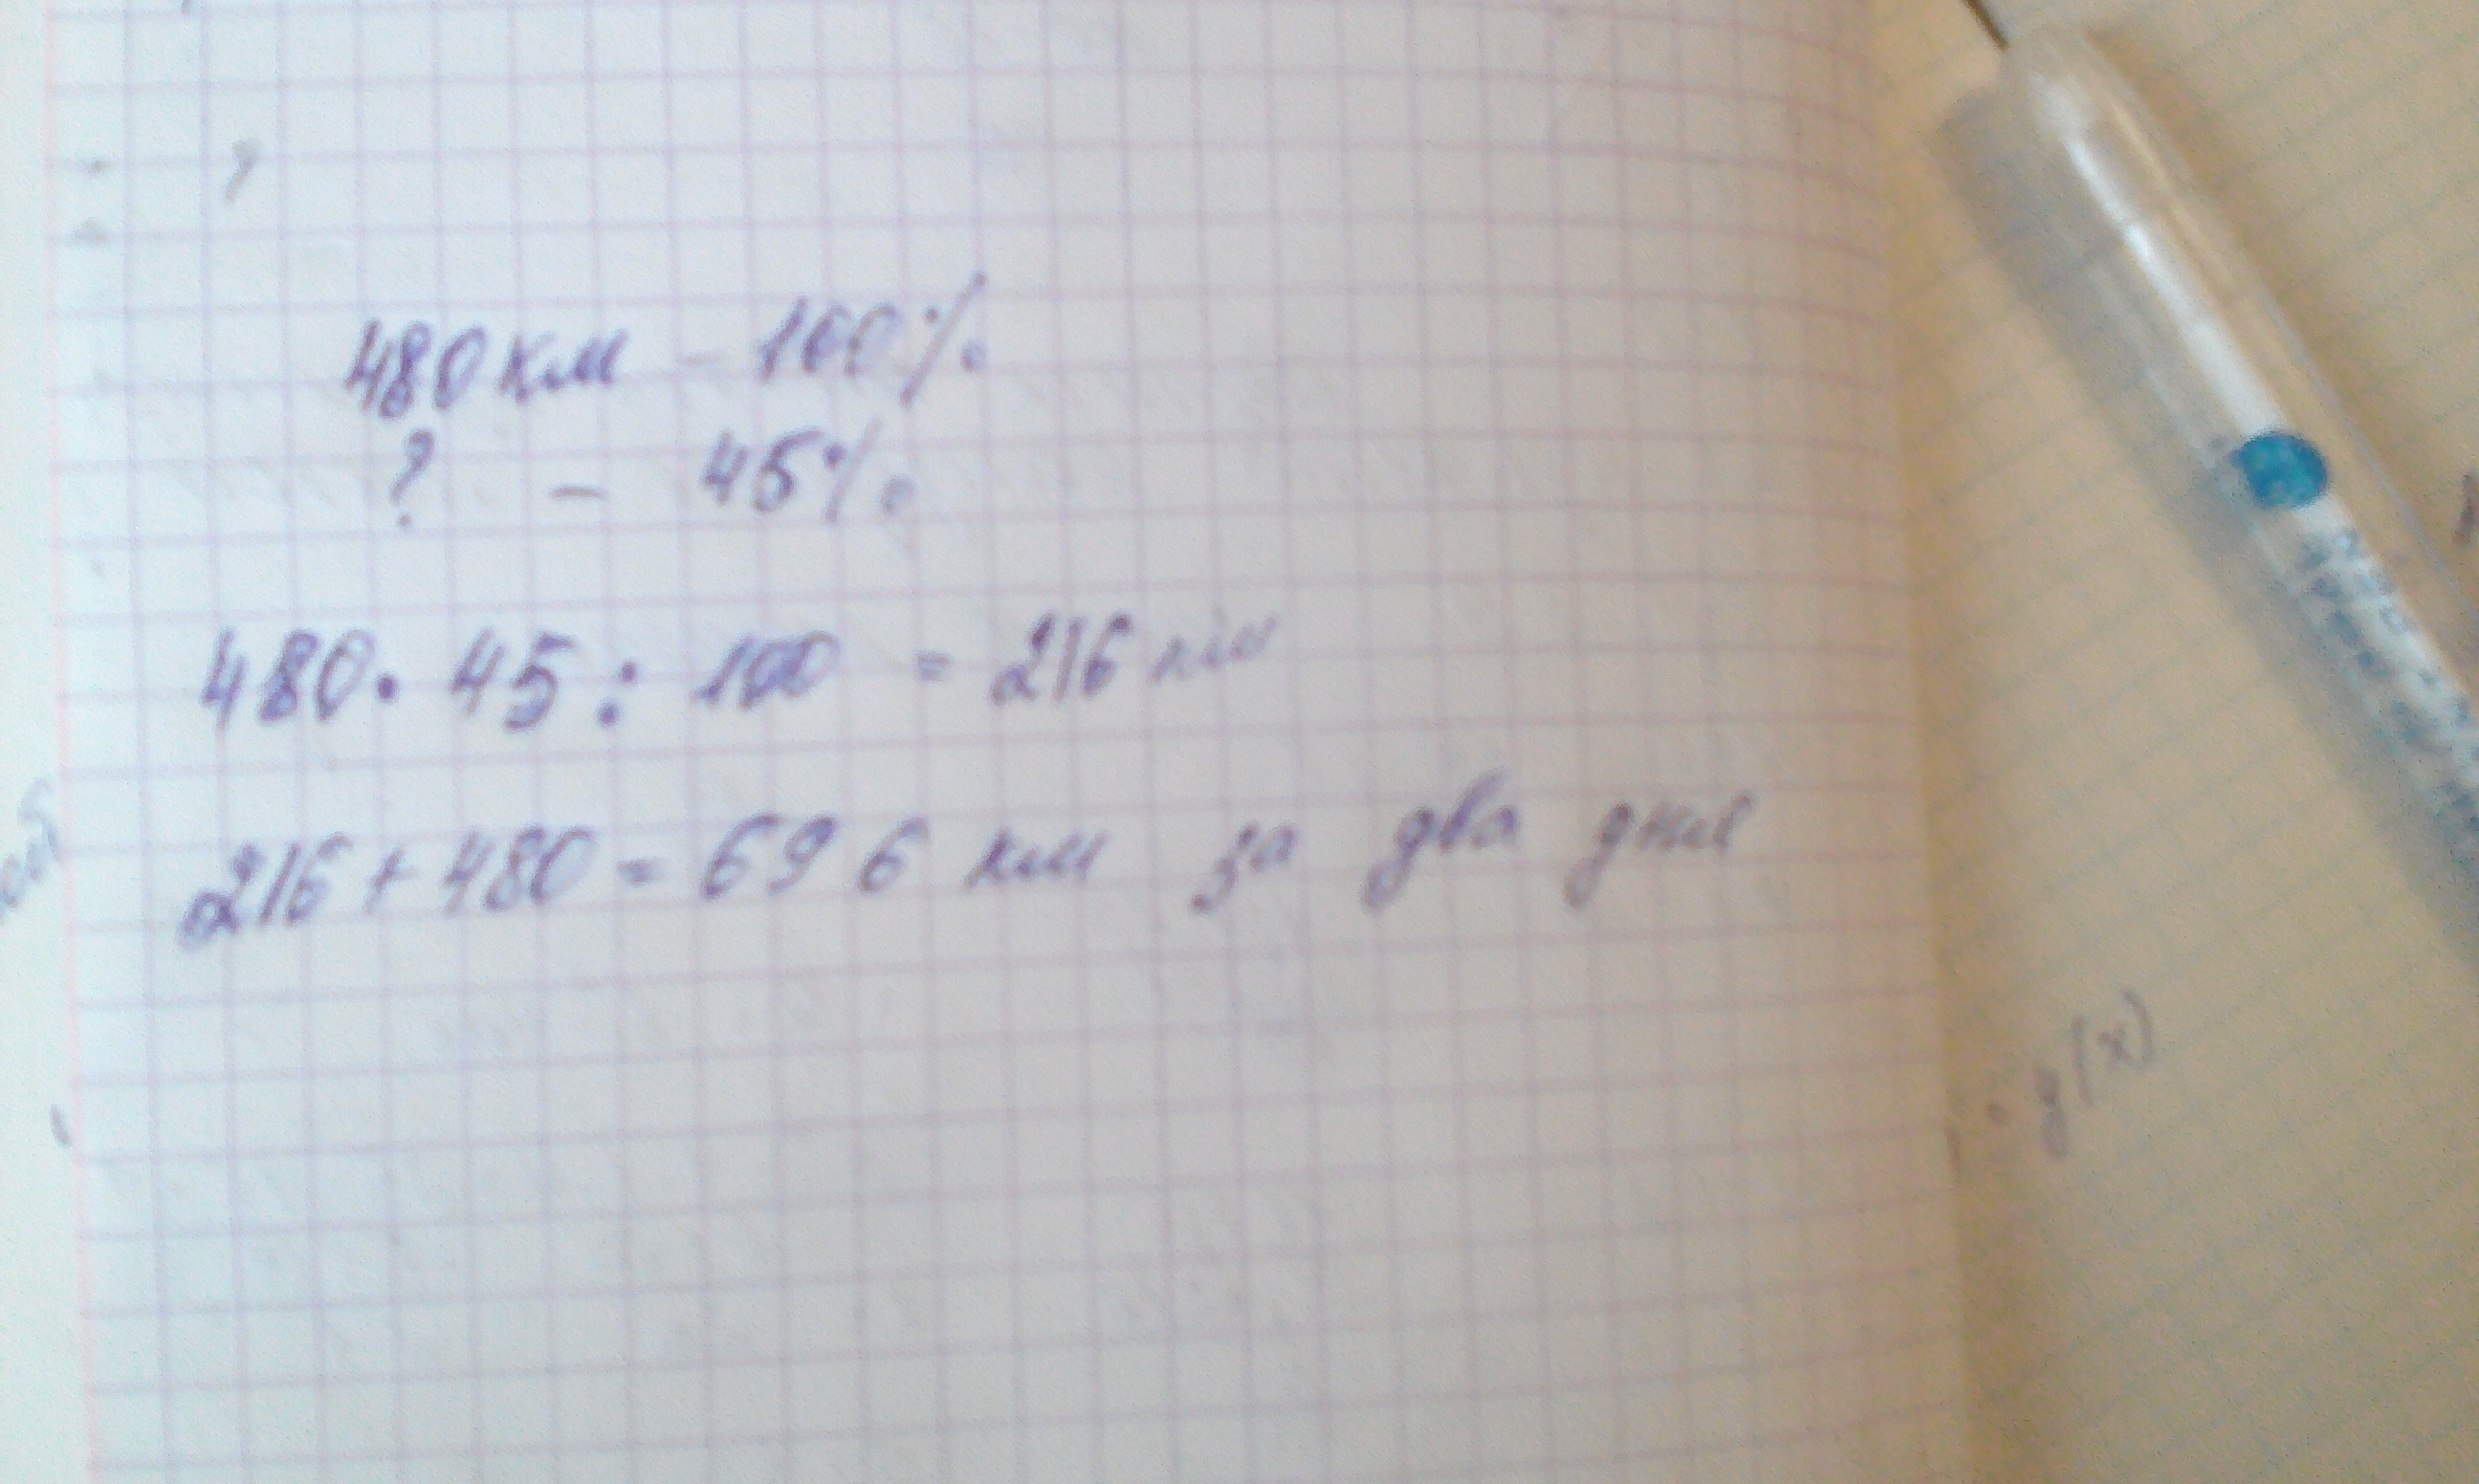 480 км - 100%
? - 45%
480 · 45 : 100 = 216 км
216 + 480 = 696 км за два дня
= y(x)